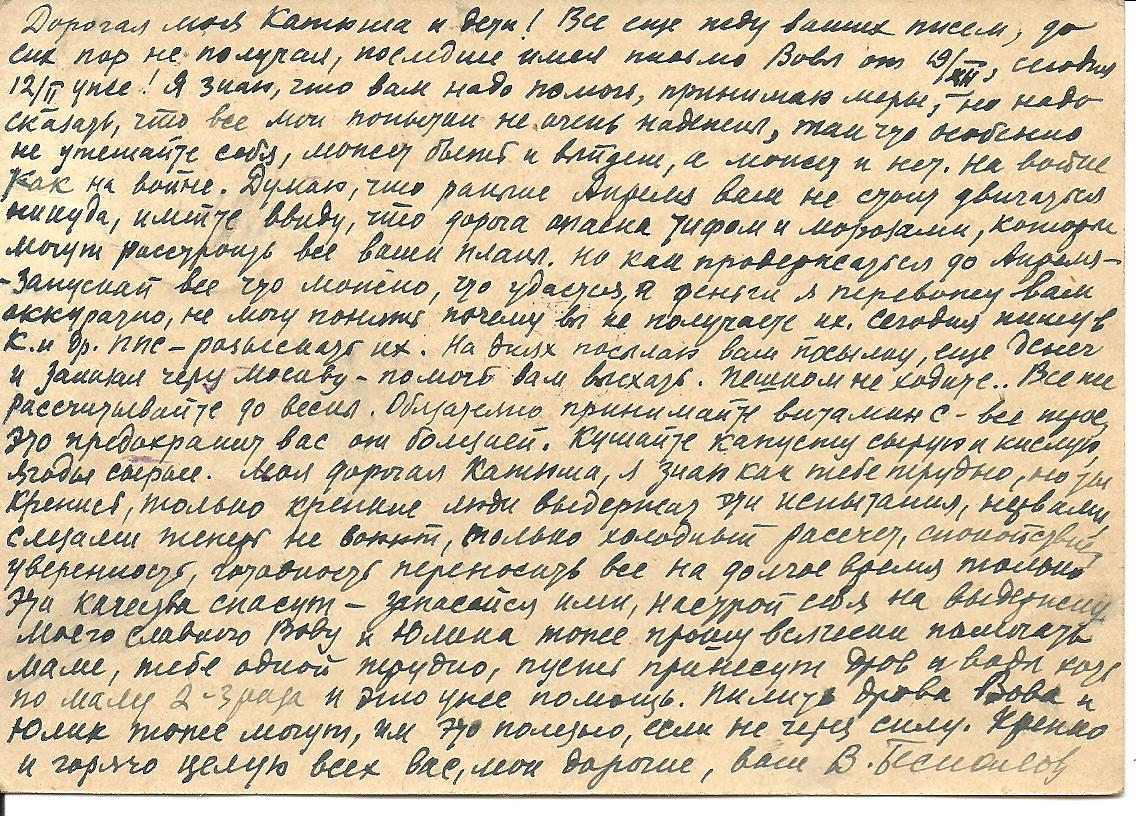 Дорогая моя Катюша и дети! Все еще жду ваших писем, до
сих пор не получал, последнее имел письмо Вовы от 19/XII, сегодня
12/II уже! Я знаю, что вам надо помочь, принимаю меры, но надо
сказать, что все мои попытки не очень надежны, так что особенно
не утешайте себя, может быть и выйдет, а может и нет. на войне
как на войне. Думаю, что раньше Апреля вам не стоит двигаться
никуда, имейте ввиду, что дорога опасна тифом и морозами, которые
могут расстроить все ваши планы. но как продержаться до Апреля-
-Запускай все что можно, что удастся, а деньги я перевожу вам
аккуратно, не могу понять почему вы не получаете их. Сегодня пишу в
К. и др. ППС - разыскать их. На днях посылаю вам посылку, еще денег
и заказал через Москву - помочь вам выехать. Пешком не ходите.. Все же
рассчитывайте до весны. Обязательно принимайте витамин С - все трое,
это предохранит вас от болезней. Кушайте капусту сырую и кислую,
ягоды сырые. Моя дорогая Катюша, я знаю как тебе трудно, но ты
крепись, только крепкие люди выдержат эти испытания, нервами,
слезами теперь не возьмешь, только холодный рассчет, спокойствие,
уверенность, готовность переносить все на долгое время только
эти качества спасут - запасайся ими, настрой себя на выдержку
Моего славного Вову и Юлика тоже прошу всячески помогать
маме, тебе одной трудно, пусть принесут дров и воды хоть
по малу 2-3 раза и это уже помощь. Пилить дрова Вова и
Юлик тоже могут, им это полезно, если не через силу. Крепко
и горячо целую всех вас, мои дорогие, ваш В.